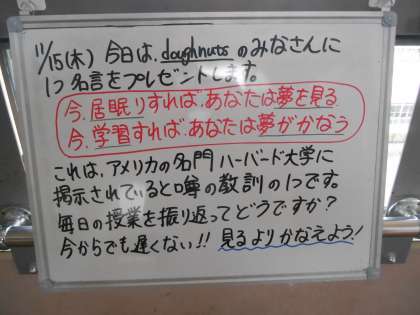 11/15(木) 今日は、doughnutsのみなさんに
1つ名言をプレゼントします。
今、居眠りすれば、あなたは夢を見る
今、学習すれば、あなたは夢がかなう
これは、アメリカの名門 ハーバード大学に
掲示されていると噂の教訓の1つです。
毎日の授業を振り返ってどうですか?
今からでも遅くない!! 見るよりかなえよう!